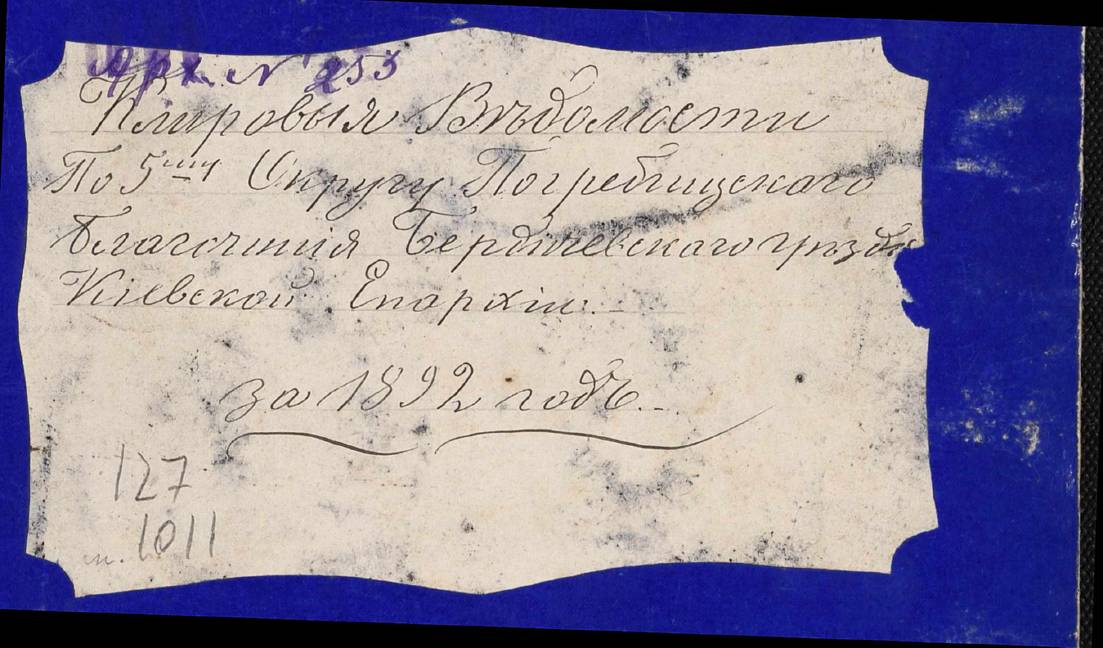 Арх. № 253
Клировыя Вѣдомости
По 5му Округу Погребищскаго
благочинія Бердичевскаго уѣзда
Кіевской Епархіи.
за 1892 годъ.
127
1011